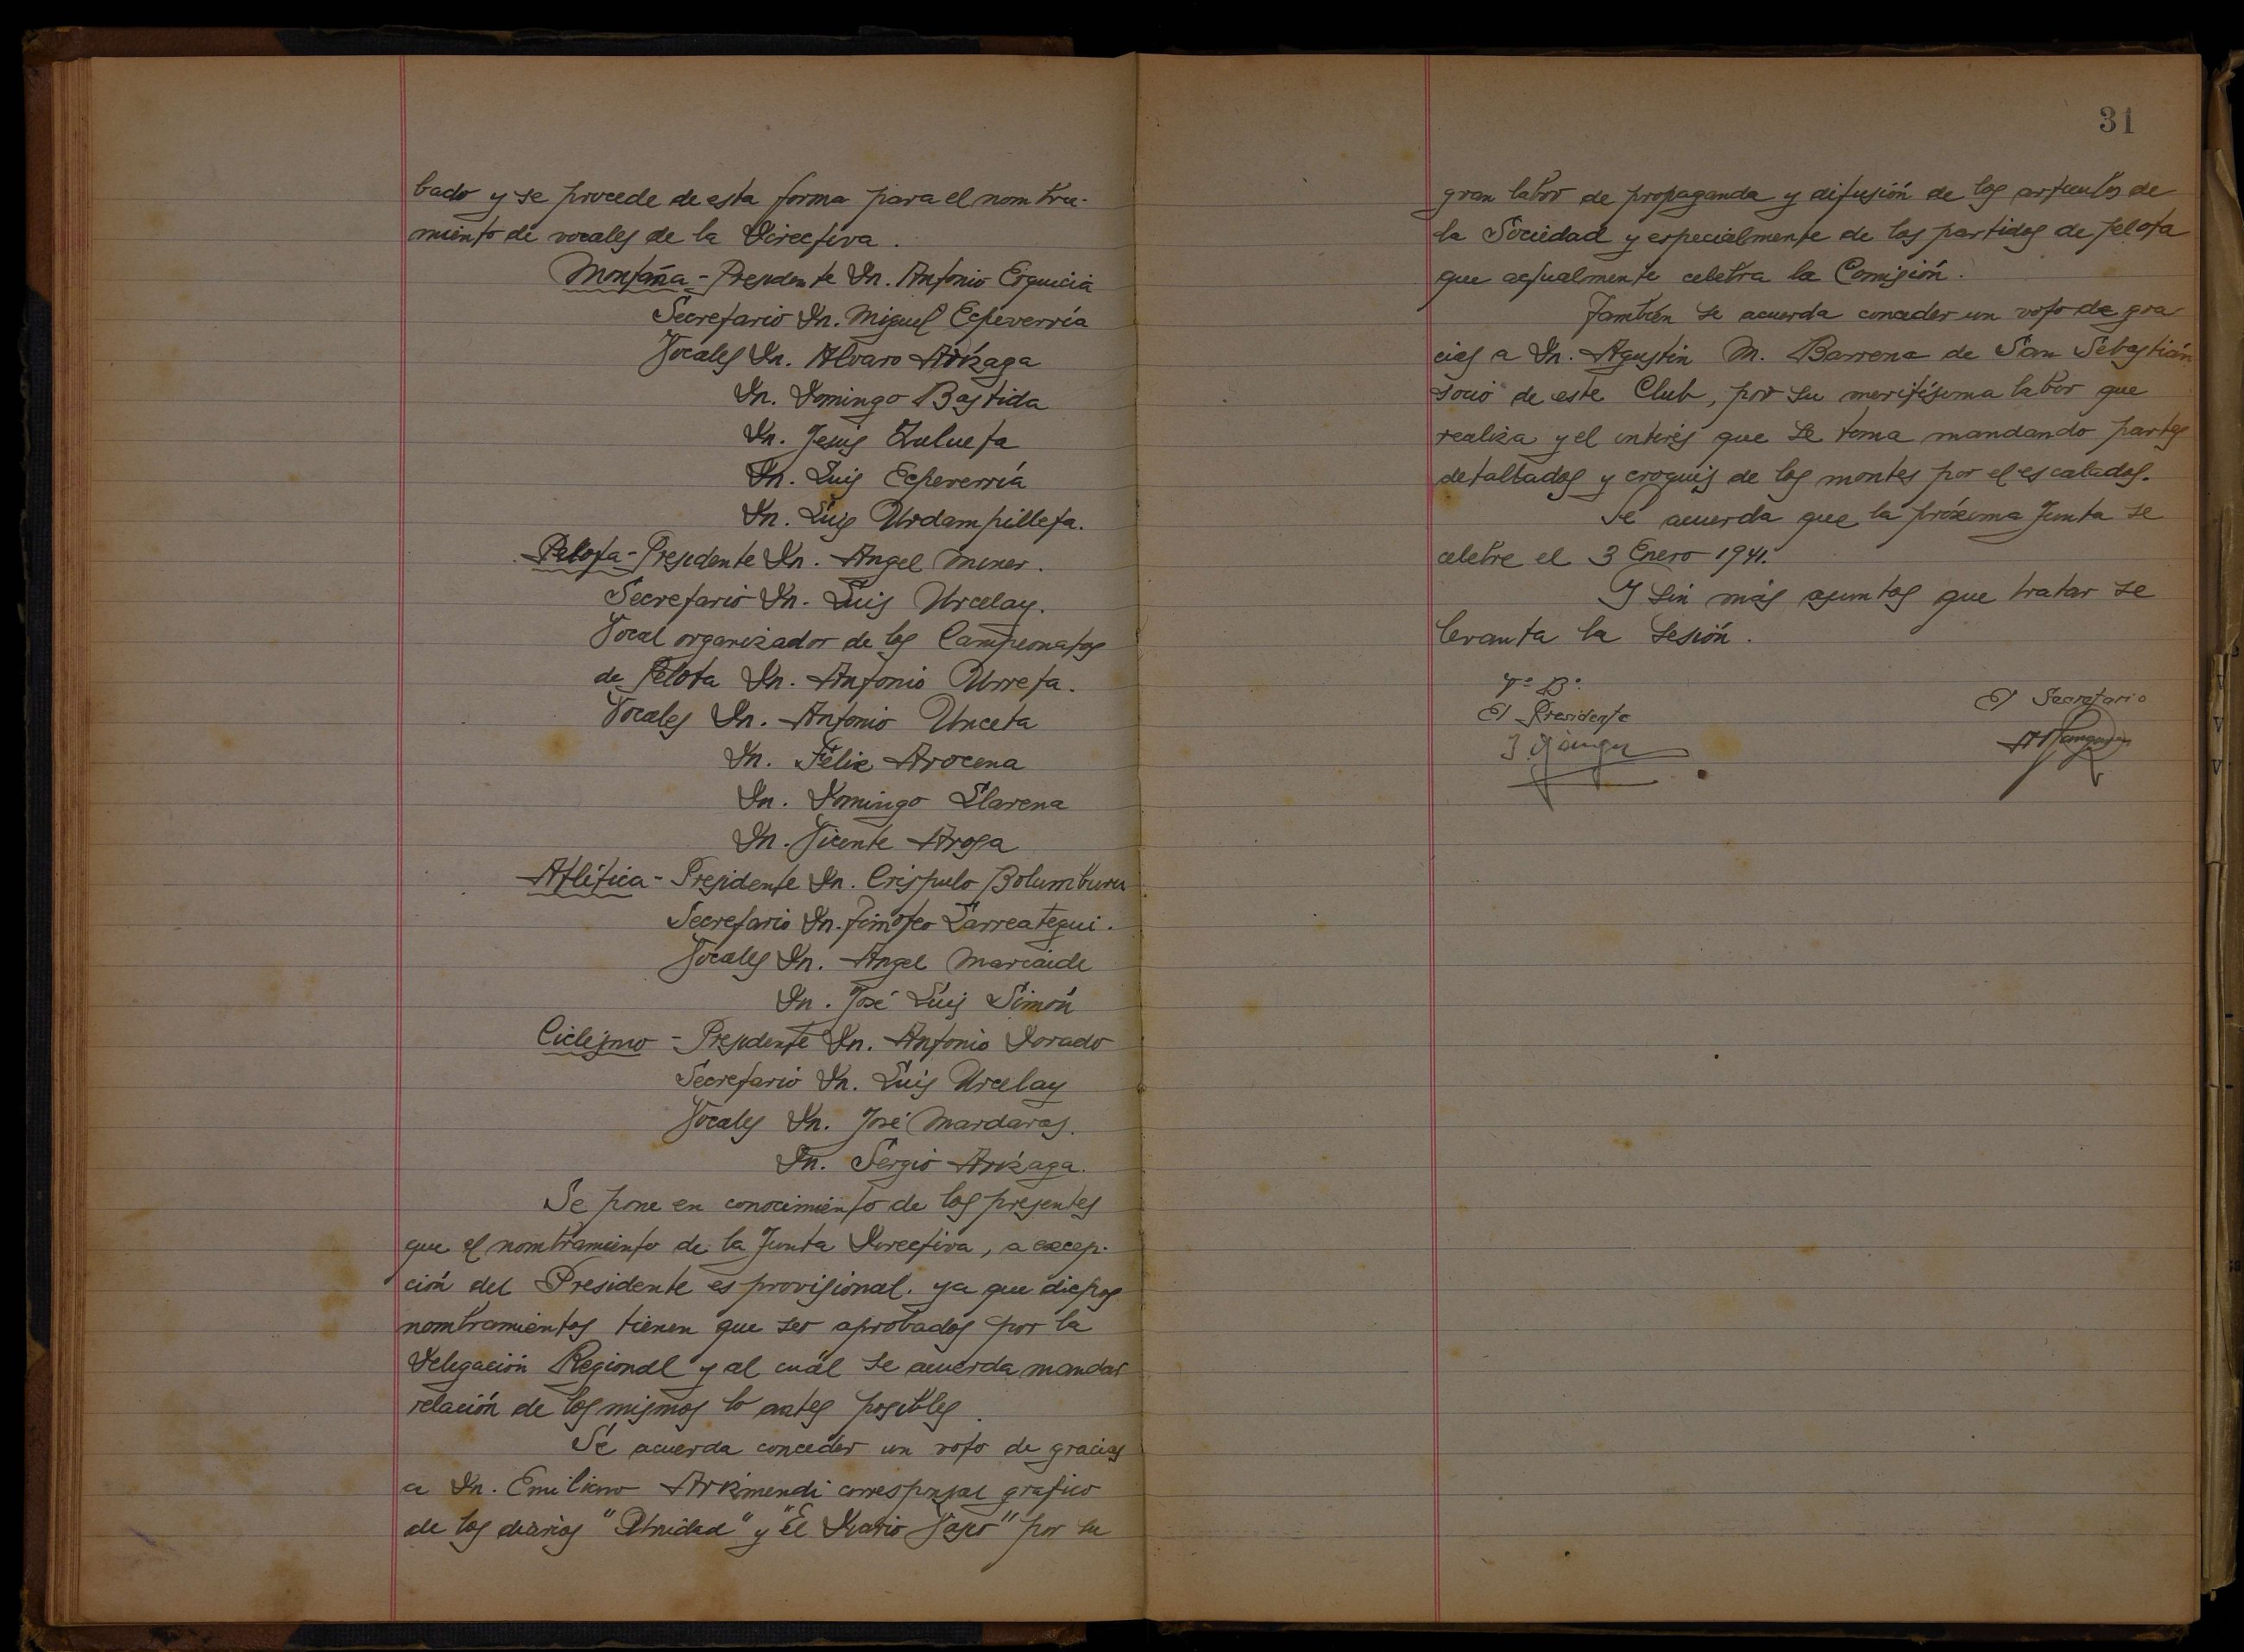 bado y se procede de esta forma para el nombra-
miento de vocales de la Directiva.
Montaña - Presidente Dn. Antonio Erquicia
Secretario Dn. Miguel Echeverría
Vocales Dn. Alvaro Arizaga
Dn. Domingo Bastida
Dn. Jesús Zulueta
Dn. Luis Echeverría
Dn. Luis Urdampilleta.
Pelota - Presidente Dn. Angel Miner.
Secretario Dn. Luis Urcelay.
Vocal organizador de los Campeonatos
de Pelota Dn. Antonio Urreta.
Vocales Dn. Antonio Unceta
Dn. Félix Arocena
Dn. Domingo Llarena
Dn. Vicente Arosa
Atlética - Presidente Dn. Crispulo Bolumburu
Secretario Dn. Timoteo Larreategui.
Vocales Dn. Angel Marcaide
Dn. José Luis Simón
Ciclismo - Presidente Dn. Antonio Dorado
Secretario Dn. Luis Urcelay
Vocales Dn. José Mardaras.
Dn. Sergio Arizaga.
Se pone en conocimiento de los presentes
que el nombramiento de la Junta Directiva, a excep-
ción del Presidente es provisional. ya que dichos
nombramientos tienen que ser aprobados por la
Delegación Regional y al cuál se acuerda mandar
relación de los mismos lo antes posibles.
Se acuerda conceder un voto de gracias
a Dn. Emiliano Arizmendi corresponsal grafico
de los diarios "Unidad" y "El Diario Vasco" por su
31
gran labor de propaganda y difusión de los artículos de
la Sociedad y especialmente de los partidos de pelota
que actualmente celebra la Comisión.
También se acuerda conceder un voto de gra-
cias a Dn. Agustín M. Barrena de San Sebastián
socio de este Club, por su meritísima labor que
realiza y el interés que se toma mandando partes
detallados y croquis de los montes por el escalados.
Se acuerda que la próxima Junta se
celebre el 3 Enero 1941.
Y sin más asuntos que tratar se
levanta la sesión.
Vº Bº
El Presidente
El Secretario